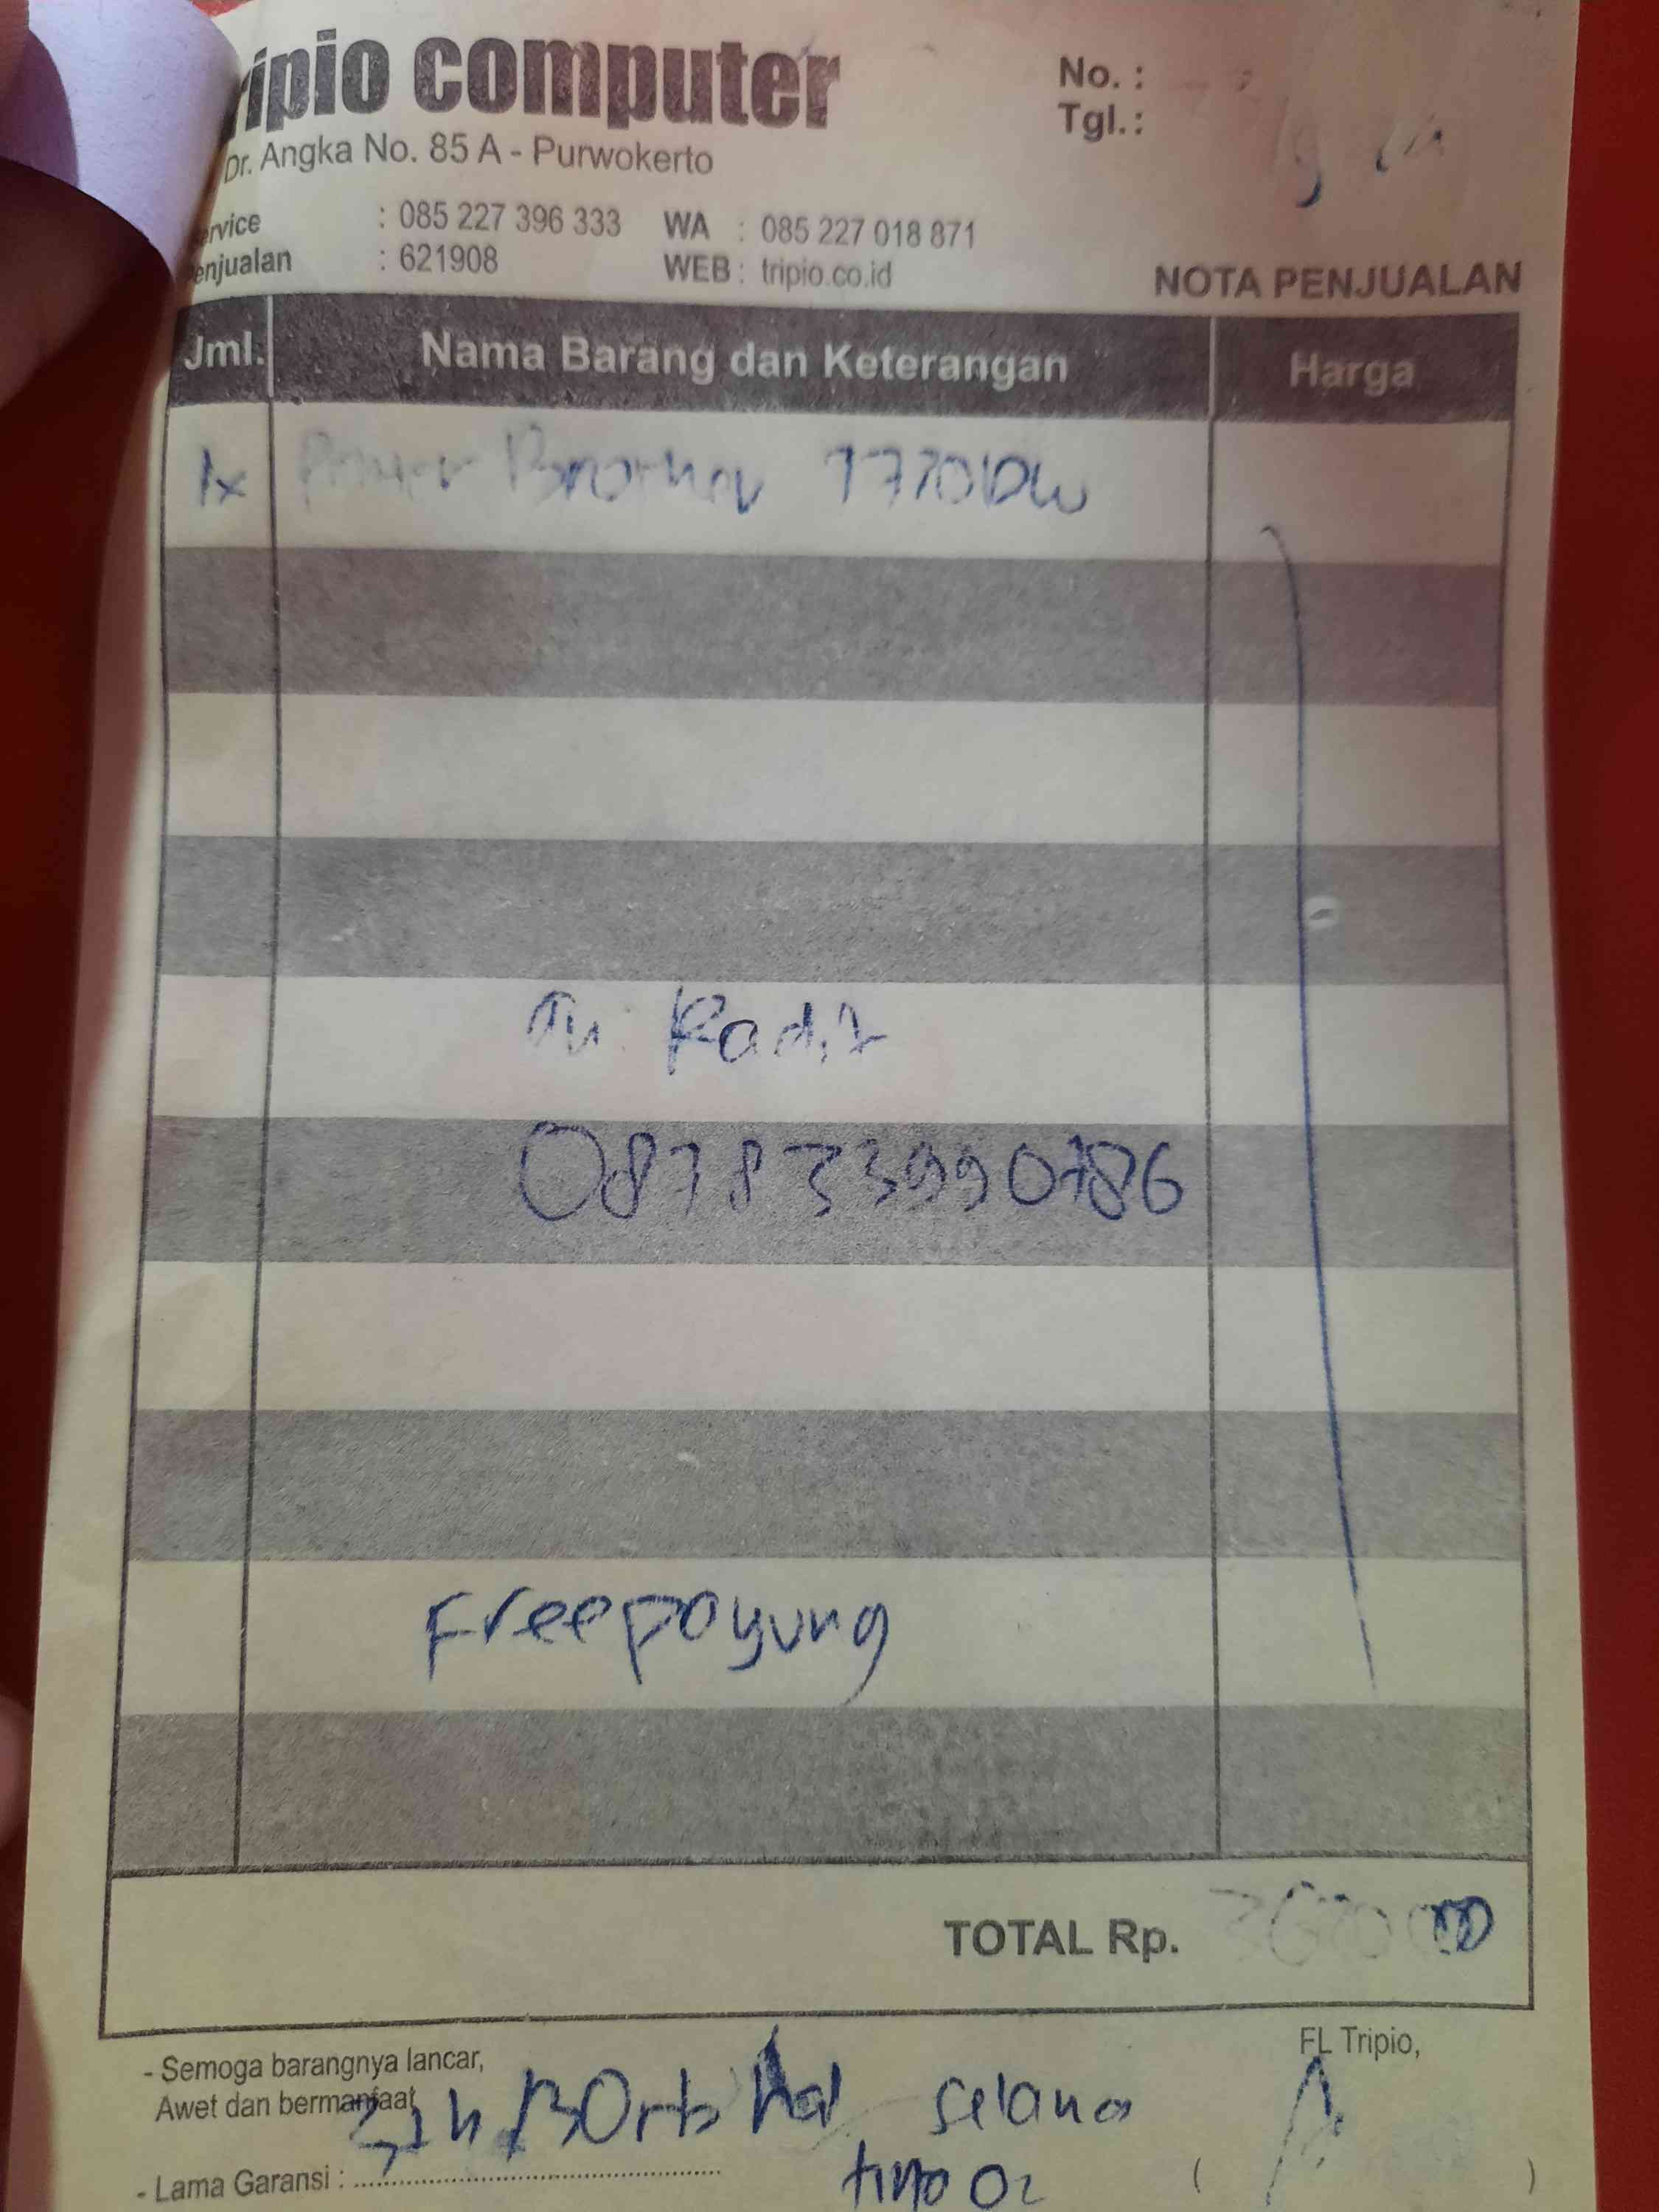 ripio computer
Dr. Angka No. 85 A - Purwokerto
No. :
Tgl. :
ervice : 085 227 396 333 WA : 085 227 018 871
enjualan : 621908 WEB : tripio.co.id
NOTA PENJUALAN
Jml. Nama Barang dan Keterangan Harga
1x Brother
Radit
087833990786
Free payung
TOTAL Rp.
- Semoga barangnya lancar,
Awet dan bermanfaat
FL Tripio,
selama
- Lama Garansi : ( )